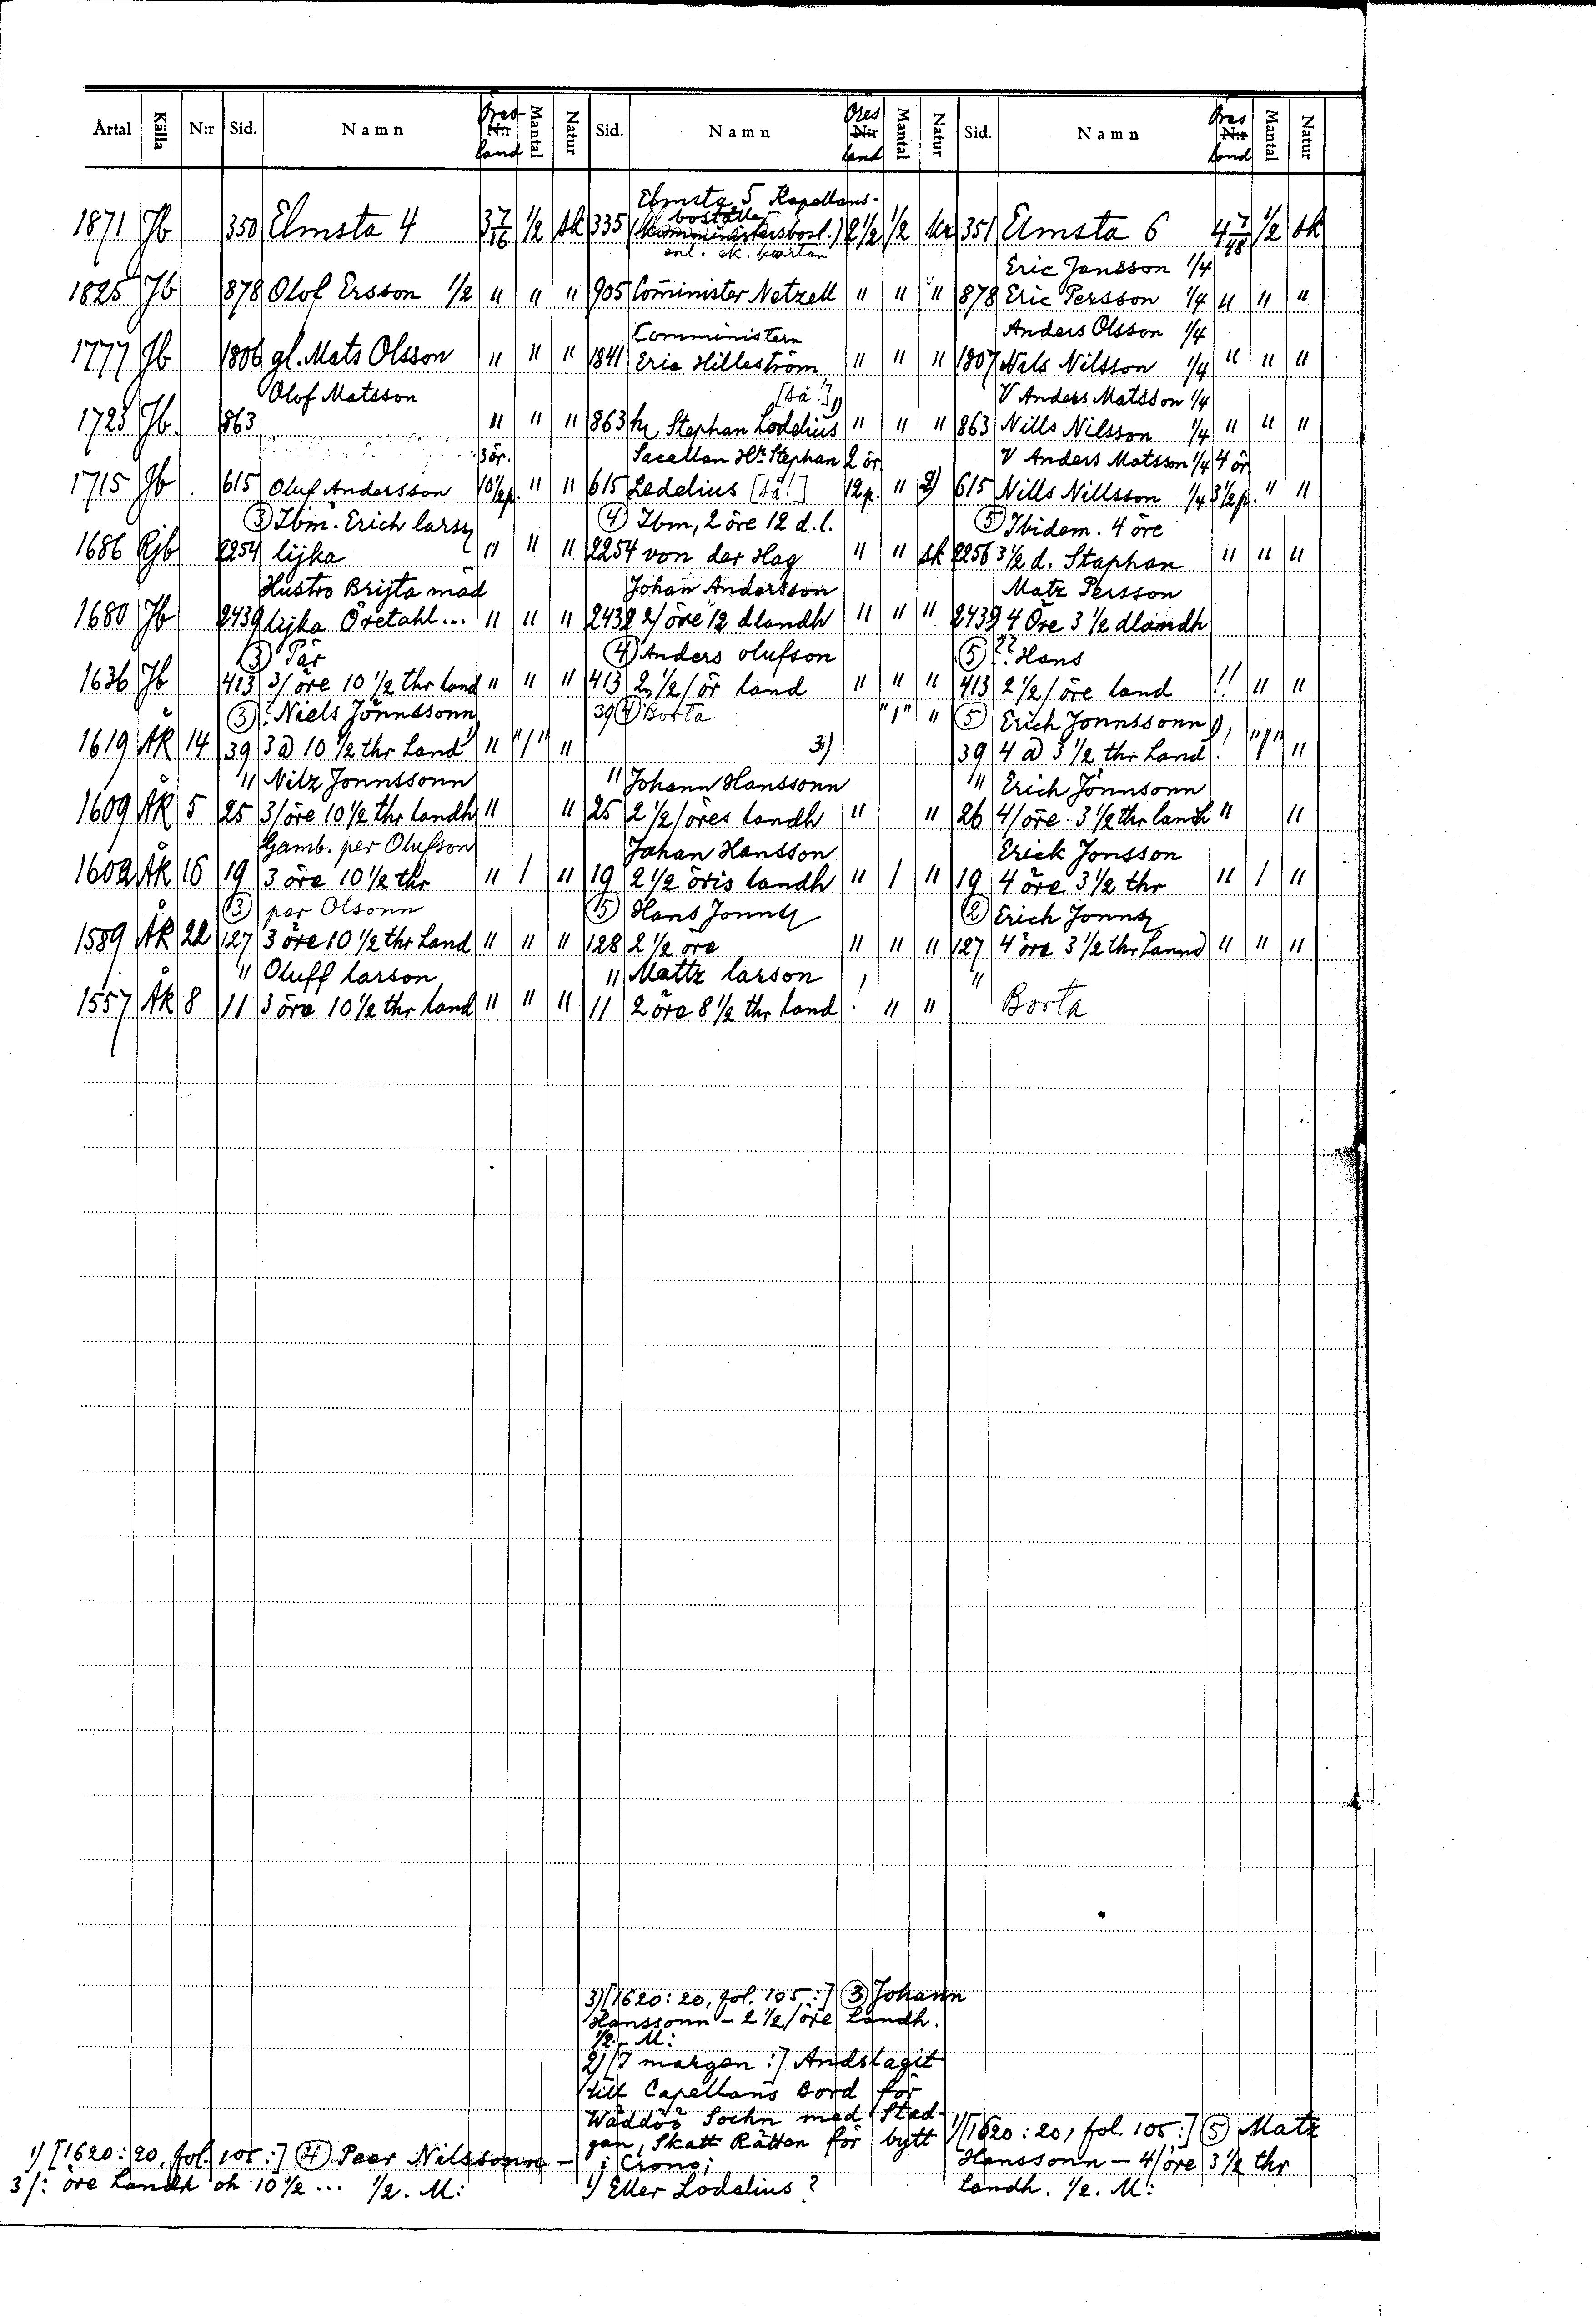 Årtal Källa N:r Sid. Namn Öres N:r land Mantal Natur Sid. Namn Öres N:r land Mantal Natur Sid. Namn Öres N:r land Mantal Natur
Elmsta 5 Kapellans-
boställe
1871 Jb 350 Elmsta 4 3 7/16 1/2 sk 335 (Komministersbost.) 2 1/2 1/2 kr 351 Elmsta 6 4 7/48 1/2 sk
enl. ek. kartan
Eric Jansson 1/4
1825 Jb 878 Olof Ersson 1/2 " " " 905 Cōminister Netzell " " " 878 Eric Persson 1/4 " " "
Comministern Anders Olsson 1/4
1777 Jb 1806 gl. Mats Olsson " " " 1841 Eric Hilleström " " " 1807 Nils Nilsson 1/4 " " "
Olof Matsson [så!] 1) V Anders Matsson 1/4
1725 Jb. 863 " " " 863 hr Stephan Lodelius " " " 863 Nills Nilsson 1/4 " " "
3 ör. Sacellan Hr. Stephan 2 ör V Anders Matsson 1/4 4 ör
1715 Jb 615 Oluf Andersson 10 1/2 p. " " 615 Ledelius [så!] 12 p. " 2) 615 Nills Nillsson 1/4 3 1/2 p. " "
(3) Ibm. Erich larsz (4) Ibm, 2 öre 12 d. l. (5) Ibidem. 4 öre
1686 Rjb 2254 lijka " " " 2254 von der Hag " " sk 2256 3 1/2 d. Staphan " " "
Hustro Brijta mäd Johan Andersson Matz Persson
1680 Jb 2439 lijka Öretahl... " " " 2439 2/öre 12 dlandh " " " 2439 4 Öre 3 1/2 dlandh
(3) Pär (4) Anders olufson (5) ?? Hans
1636 Jb 413 3/öre 10 1/2 thr land " " " 413 2 1/2/ör land " " " 413 2 1/2/öre land !! " "
(3) ? Niels Jönnssonn 39 (4) Borta "1" " (5) Erich Jonnssonn 1)
1619 Åk 14 39 3 a 10 1/2 thr Land 1) " "1" " 3) 39 4 a 3 1/2 thr Land ! "1" "
" Nilz Jonnssonn " Johann Hanssonn " Erich Jönnsonn
1609 Åk 5 25 3/öre 10 1/2 thr landh " " 25 2 1/2/öres landh " " 26 4/öre 3 1/2 thr landh " "
Gamb. per Olufson Johan Hansson Erick Jonsson
1602 Åk 16 19 3 öre 10 1/2 thr " 1 " 19 2 1/2 öris landh " 1 " 19 4 öre 3 1/2 thr " 1 "
(3) per Olsonn (5) Hans Jonnsz (2) Erich Jonnsz
1589 Åk 22 127 3 öre 10 1/2 thr Land " " " 128 2 1/2 öre " " " 127 4 öre 3 1/2 thr Lannd " " "
" Oluff larson " Mattz larson "
1557 Åk 8 11 3 öre 10 1/2 thr land " " " 11 2 öre 8 1/2 thr land ! " " Borta
3) [1620: 20, fol. 105:] (3) Johann
Hanssonn - 2 1/2/öre Landh.
1/2.- M:
2) [I margen:] Andslagit
till Capellans Bord för
Wäddöö Sochn med Stad-
gan, Skatt Rätten för bytt
i Crono;
1) Eller Lodelius?
1) [1620: 20, fol. 105:] (4) Peer Nilssonn -
3/: öre Landh oh 10 1/2 ... 1/2. M:
1) [1620: 20, fol. 105:] (5) Matz
Hanssonn - 4/öre 3 1/2 thr
Landh. 1/2. M: